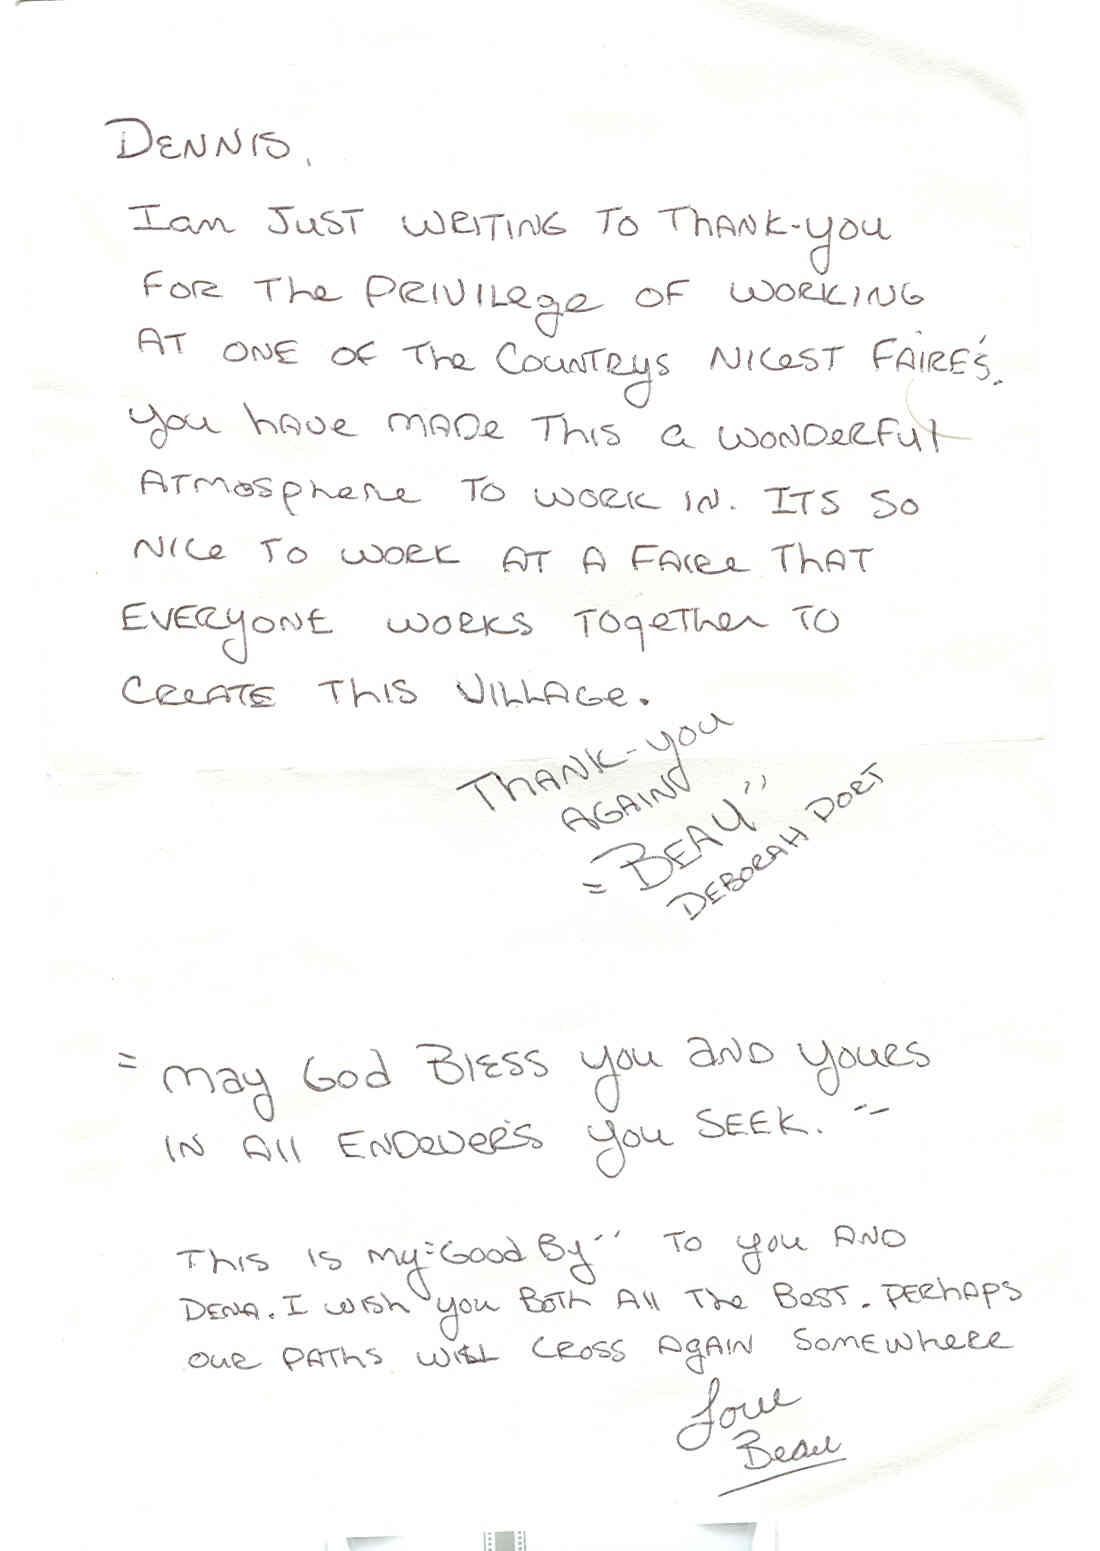 DENNIS,
I am JUST WRITING TO ThANK-you
FOR The PRIVILege OF WORKING
AT ONE OF The COUNTRys NICeST FAIRE'S.
you hAVe MADe ThIS a WONDeRFul
ATmosphere TO WORK IN. ITS SO
NICe TO WORK AT A FAIRe ThAT
EVERyONE WORKS TOgeTher TO
CReATE ThIS VILLAGe.
ThANK-you
AGAIN
"BEAU"
DEBORAH DORT
"May God BlESS you aND youRS
IN All ENDeVeR'S you SEEK."
ThIS IS My "Good By" TO you AND
DENA. I WISh you BOTh All The BeST. PERhAPS
OUR PAThS WILL CROSS AgAIN SOMEWheRe
Love
Beau